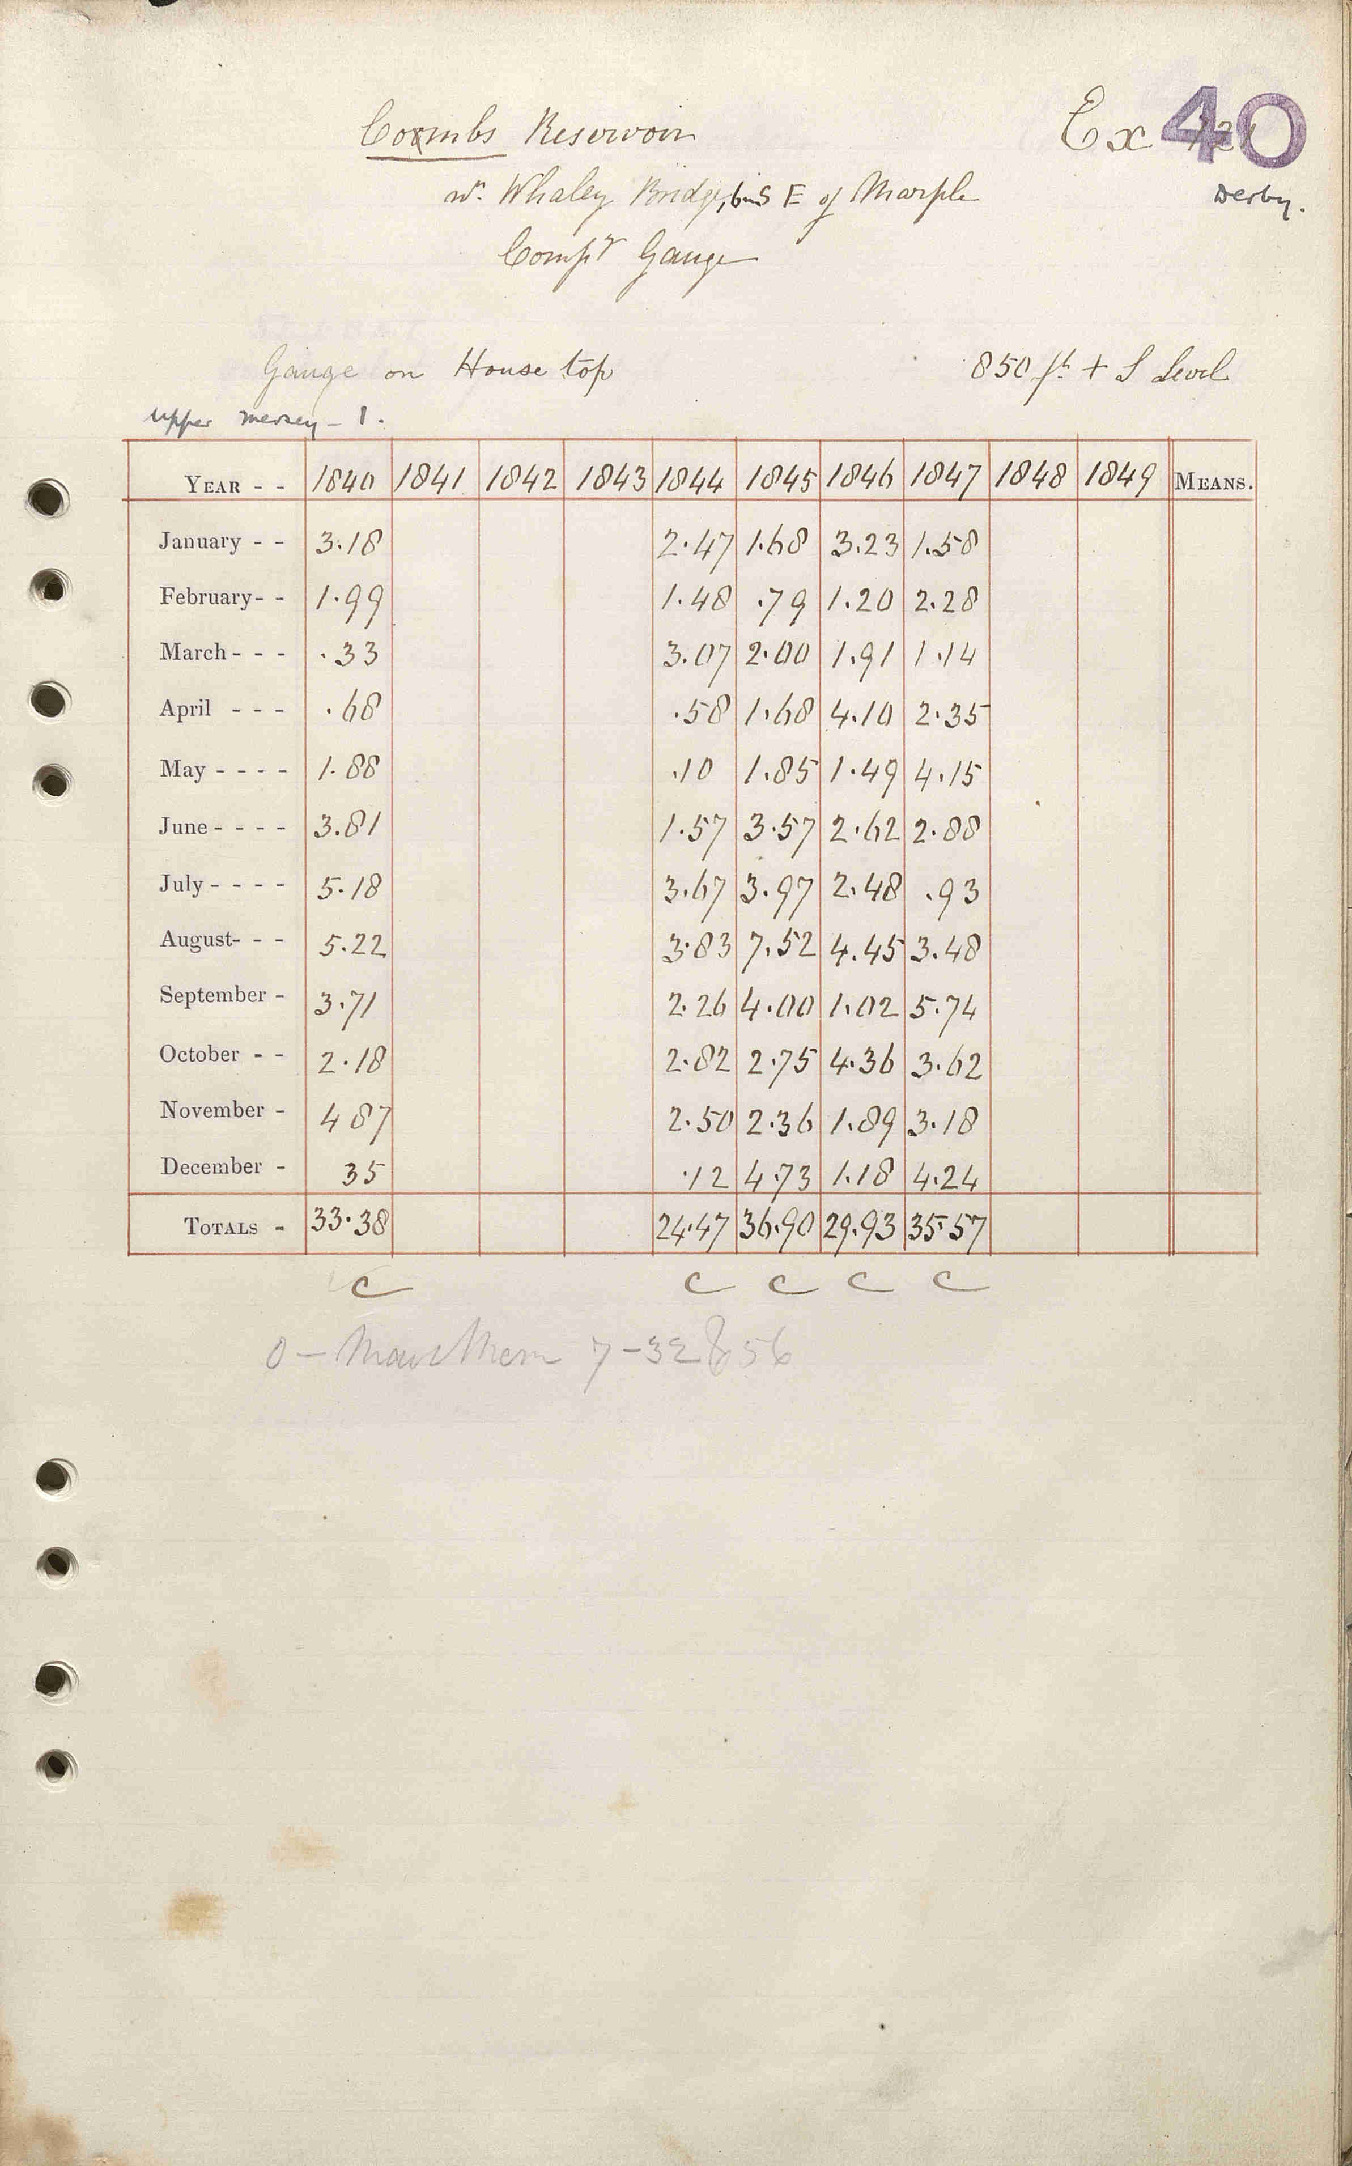 Coombs Reservoir
Ex 40
nr. Whaley Bridge, 6m S E of Marple
Derby.
Compy Gauge
Gauge on House top 850 ft + S Level
upper mersey - 1.
YEAR - - 1840 1841 1842 1843 1844 1845 1846 1847 1848 1849 MEANS.
January - - 3.18 2.47 1.68 3.23 1.58
February - - 1.99 1.48 .79 1.20 2.28
March - - - .33 3.07 2.00 1.91 1.14
April - - - .68 .58 1.68 4.10 2.35
May - - - - 1.88 .10 1.85 1.49 4.15
June - - - - 3.81 1.57 3.57 2.62 2.88
July - - - - 5.18 3.67 3.97 2.48 .93
August - - - 5.22 3.83 7.52 4.45 3.48
September - 3.71 2.26 4.00 1.02 5.74
October - - 2.18 2.82 2.75 4.36 3.62
November - 4 87 2.50 2.36 1.89 3.18
December - 35 .12 4.73 1.18 4.24
TOTALS - 33.38 24.47 36.90 29.93 35.57
C C C C C
0 - 7-32 56